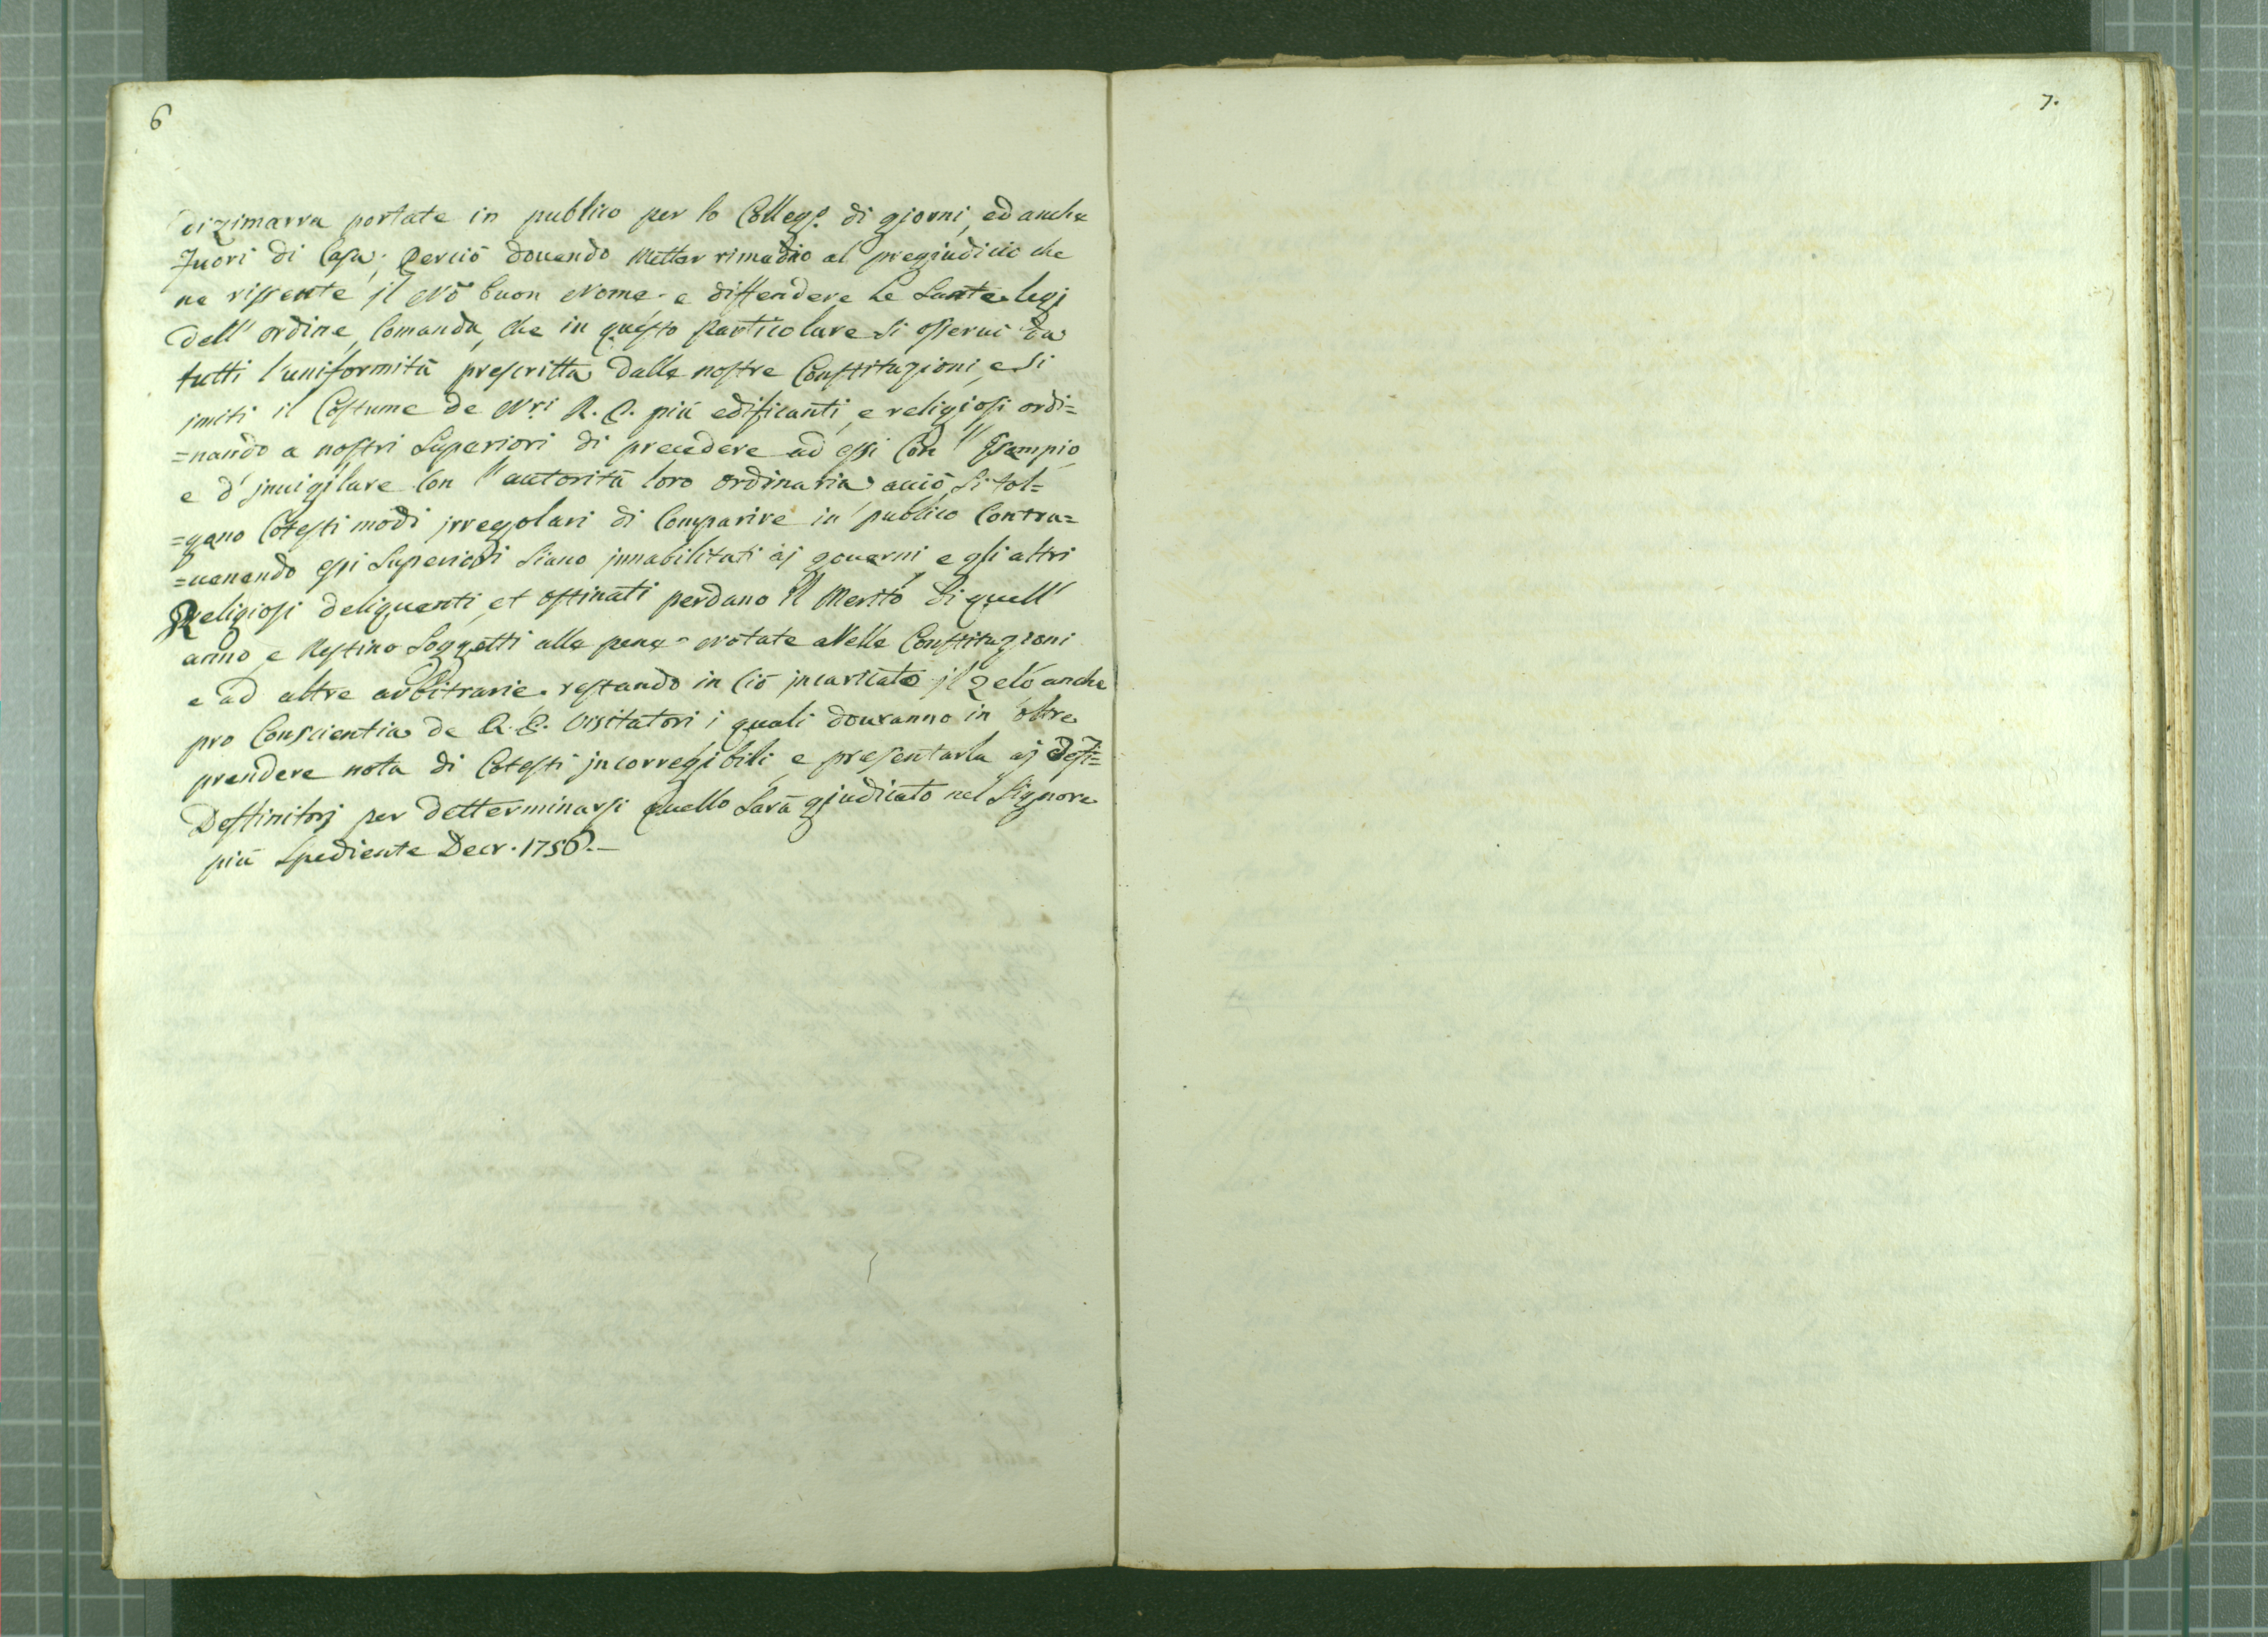 6
di zimarra portate in publico per lo Colleg.º di giorni, ed anche
fuori di Casa; Perciò douendo Metter rimedio al pregiudicio che
ne rissente jl Nõ buon Nome. e diffendere Le Sante legi
dell' ordine, Comanda, che in questo particolare si osserui da
tutti l'uniformità prescritta dalle nostre Constitugioni, e Si
imiti il Costume de N.ri R. P. più edificanti, e religiosi ordi=
=nando a nostri Superiori di precedere ad essi Con l'Esempio
e d'jnuigilare Con l'autorità loro ordinaria acciò Si tol=
=gano Cotesti modi jrregolari di Comparire in publico Contra=
=uenendo essi Superiori Siano jnnabilitati aj gouerni, e gli altri
Religiosi deliquenti, et ostinati perdano Il Merito di quell'
anno, e Restino Soggetti alle pene notate Nelle Constitugioni
e ad altre arbitrarie. restando in Ciò jncaricato jl Zelo anche
pro Conscientia de R. P. Visitatori i quali douranno in oltre
prendere nota di Cotesti jncorregibili, e presentarla aj
Deffinitorj per detterminarsi quello Sarà giudicato nel Signore
più Spediente Decr. 1756.—
7.